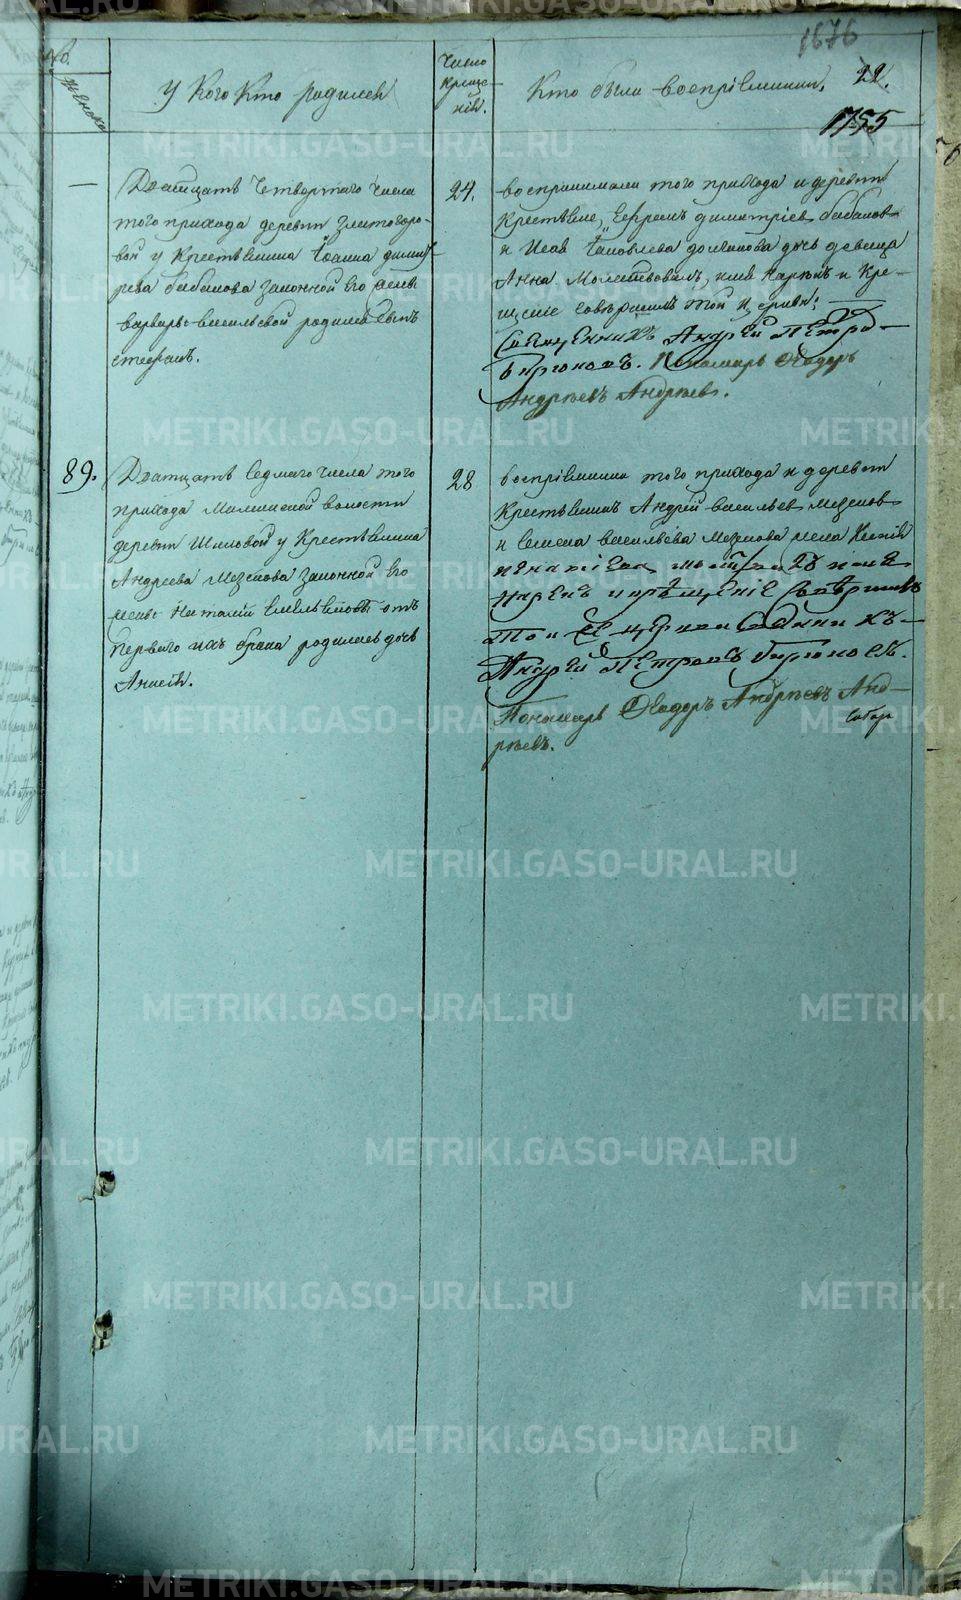 1676
No.
женска
У Кого Кто родился
Число
Креще-
нія.
Кто были воспріемники.
22.
1755
—
Дватцать Четвертаго Числа
того прихода деревни Златогоро-
вой у Крестьянина Іоанна димит-
рева бабанова Законной Его жены
варвары васильевой родился сынъ
стефанъ.
24.
воспринимали того прихода и деревни
Крестьяне Ефремъ димитріев бабанов
и Исая дочь девица
Анна Молитвовалъ, имя нарекъ и Кре-
щение Совершилъ той Церкви;
Священникъ Андрей Петро
Бирюковъ. Пономарь Ѳеодоръ
Андреевъ Андреев.
89.
Дватцать Седмаго Числа того
прихода волости
деревни Шиловой у Крестьянина
Андреева Мезенова Законной Его
жены Наталіи от
первого ихъ брака родилась дочь
Анисія.
28
воспріемники того прихода и деревни
Крестьянинъ Андрей васильев мезенов
и Семена васильева Мезенова жена
28 имя
нарекъ и крещение Совершилъ
Той Церкви Священникъ
Андрей Петровъ Бирюковъ.
Пономарь Ѳеодоръ Андреевъ Анд-
реевъ.
METRIKI.GASO-URAL.RU